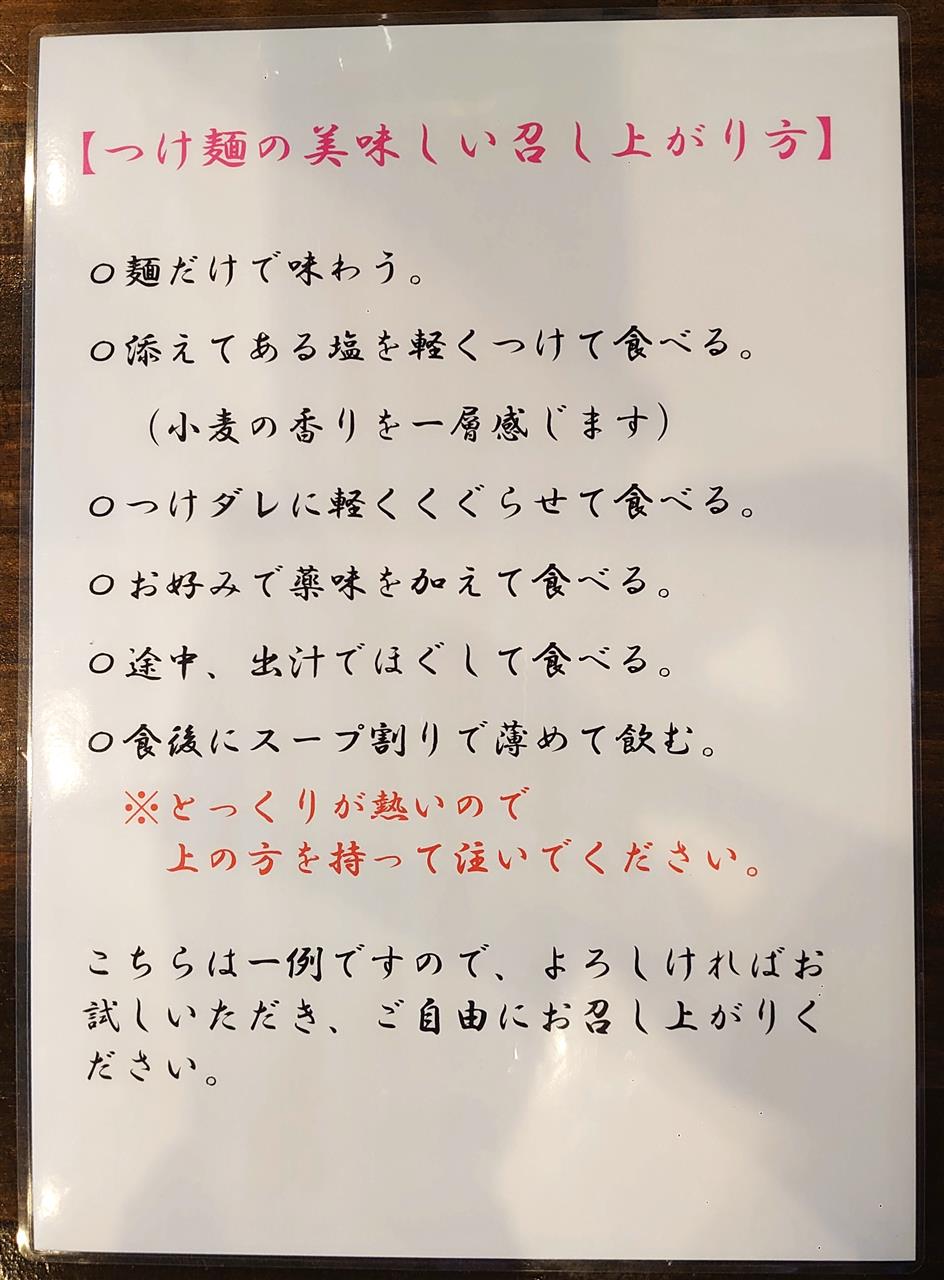 【つけ麺の美味しい召し上がり方】
○麺だけで味わう。
○添えてある塩を軽くつけて食べる。
（小麦の香りを一層感じます）
○つけダレに軽くくぐらせて食べる。
○お好みで薬味を加えて食べる。
○途中、出汁でほぐして食べる。
○食後にスープ割りで薄めて飲む。
※とっくりが熱いので
上の方を持って注いでください。
こちらは一例ですので、よろしければお
試しいただき、ご自由にお召し上がりく
ださい。